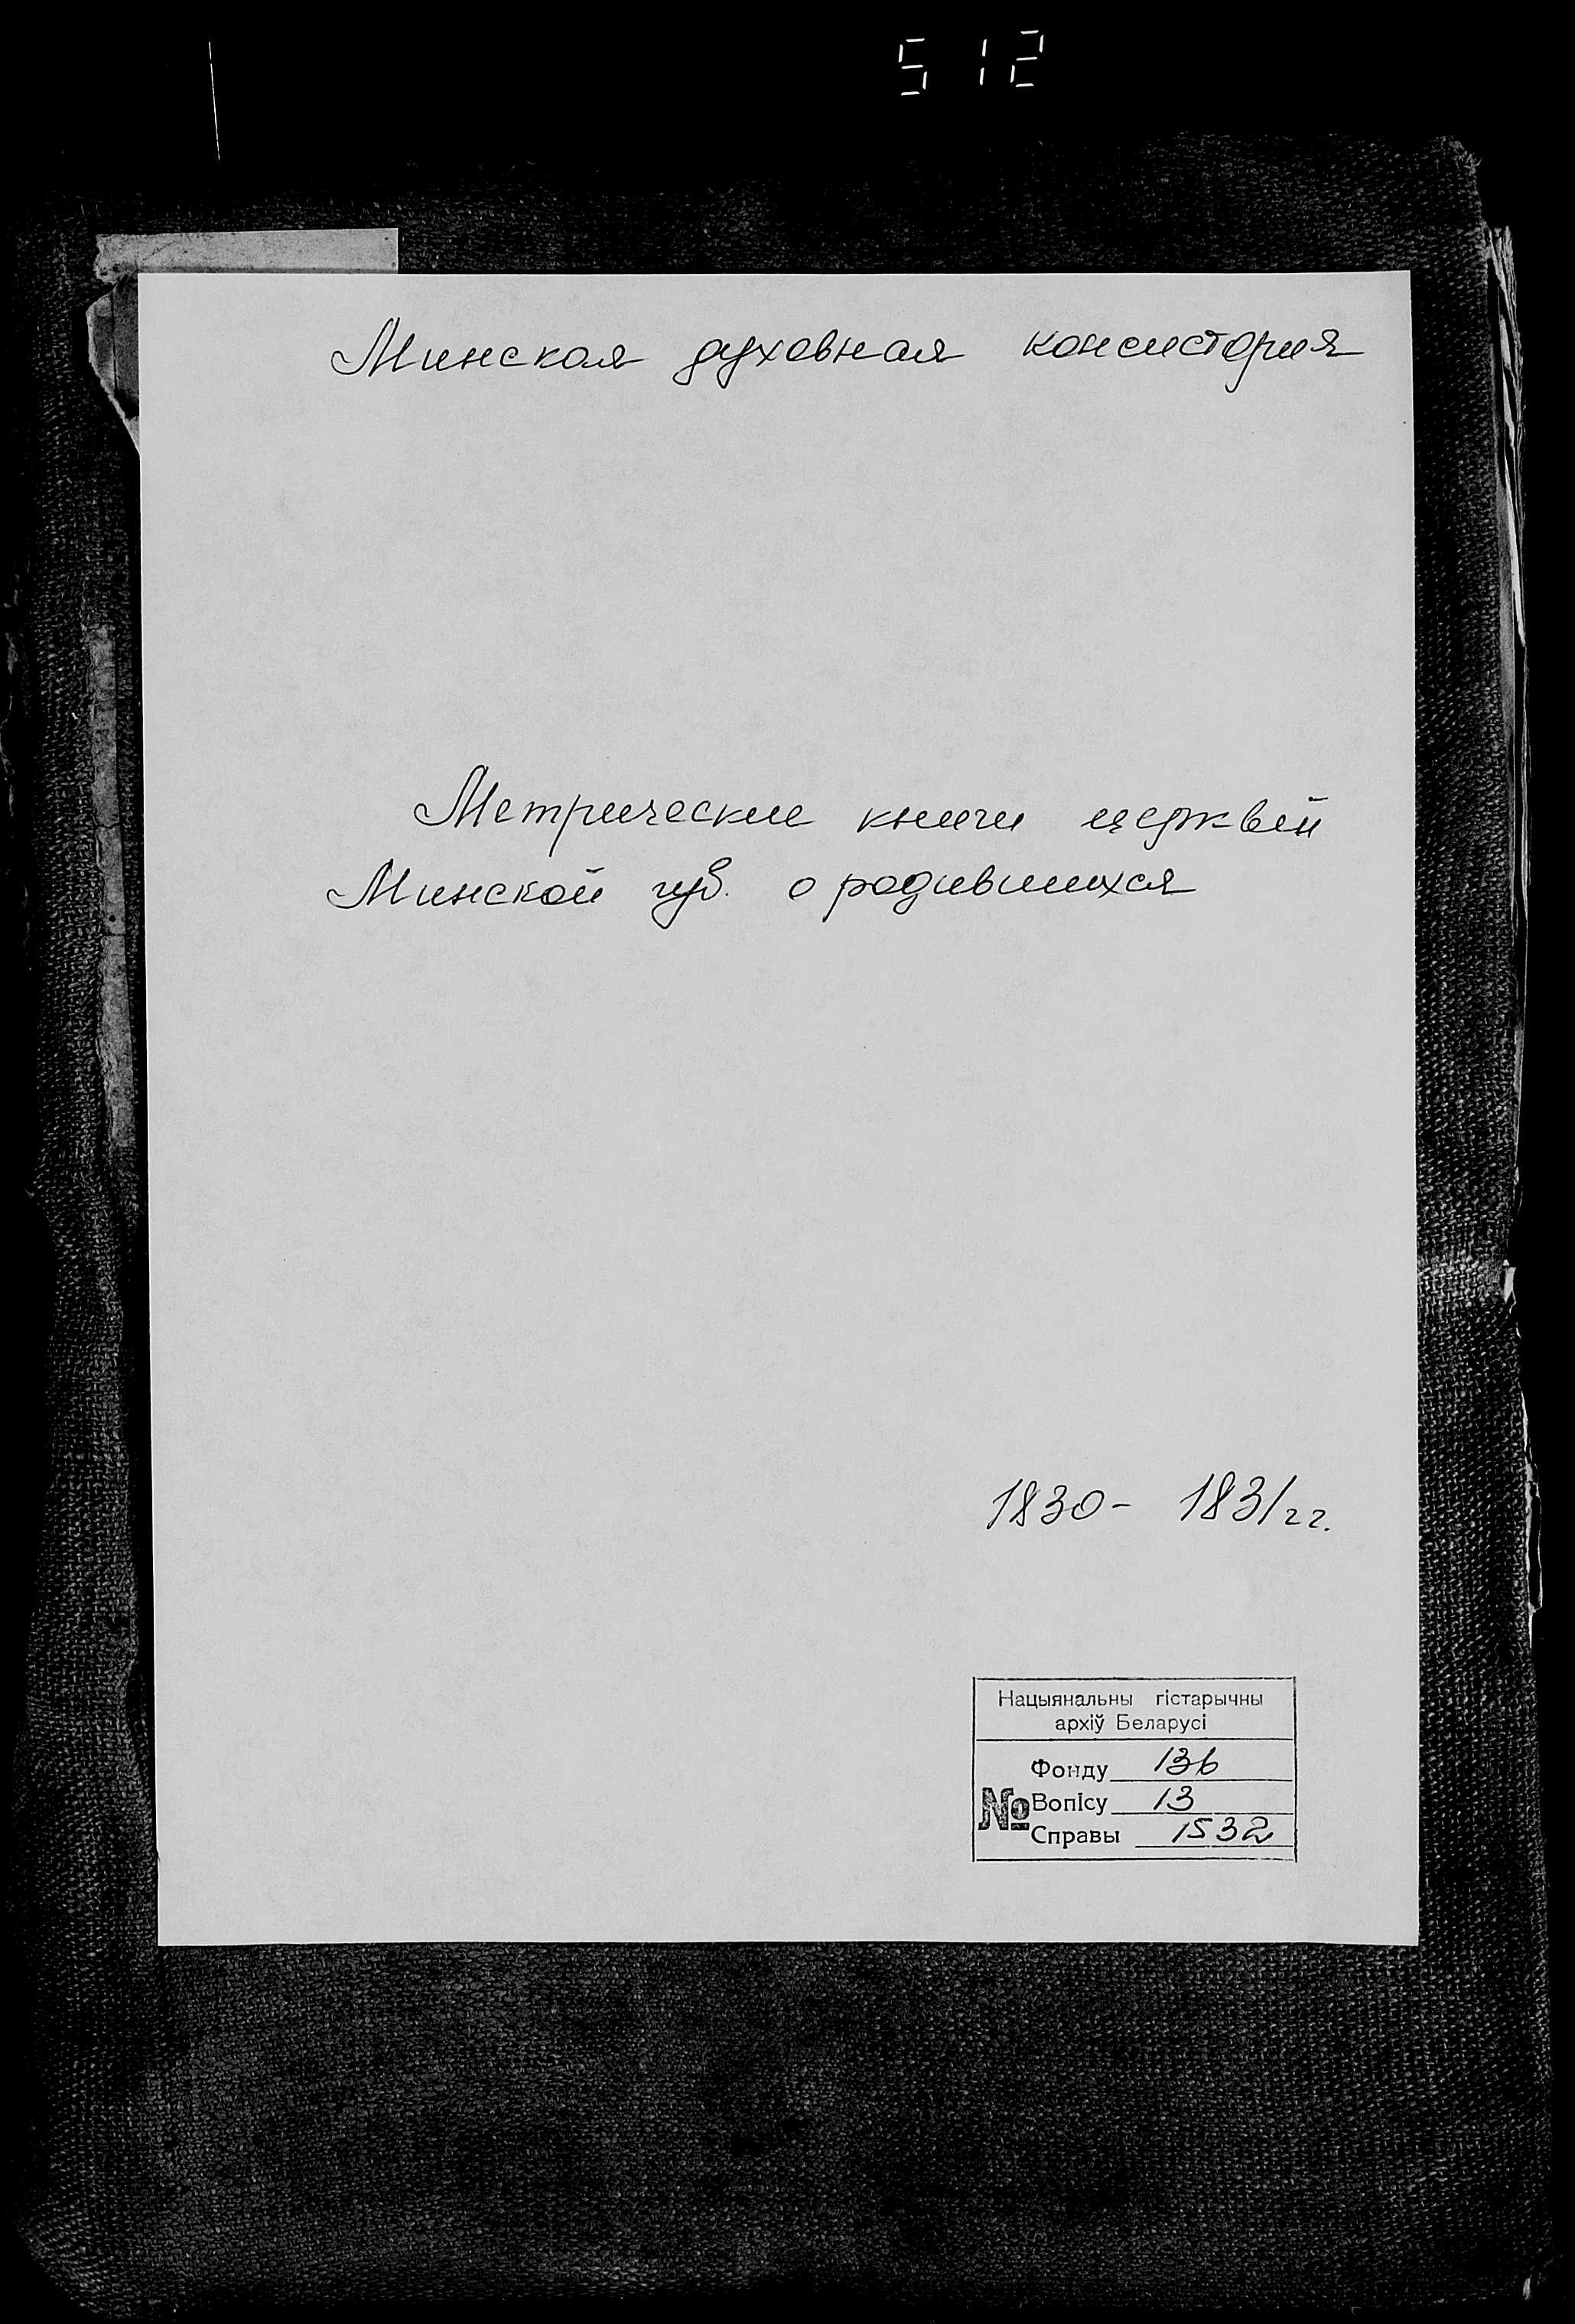 512
Минская духовная консистория
Метрические книги церквей
Минской губ. о родившихся
1830- 1831гг.
Нацыянальны гістарычны
архіў Беларусі
Фонду 136
№ Вопісу 13
Справы 1532